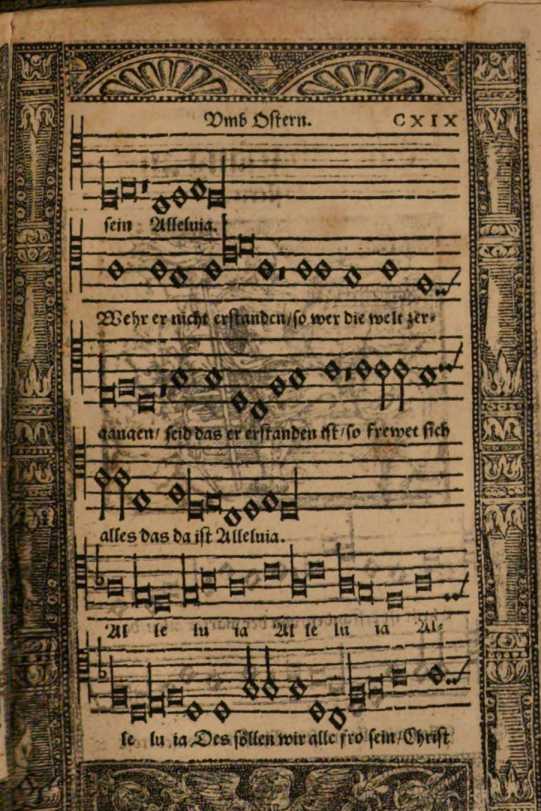 Vmb Ostern. CXIX
sein Alleluia.
Wehr er nicht erstanden/so wer die welt zer⸗
gangen/ seid das er erstanden ist/so frewet sich
alles das da ist Alleluia.
Al le lu ia Al le lu ia Al⸗
le lu ia Des söllen wir alle fro sein/Christ